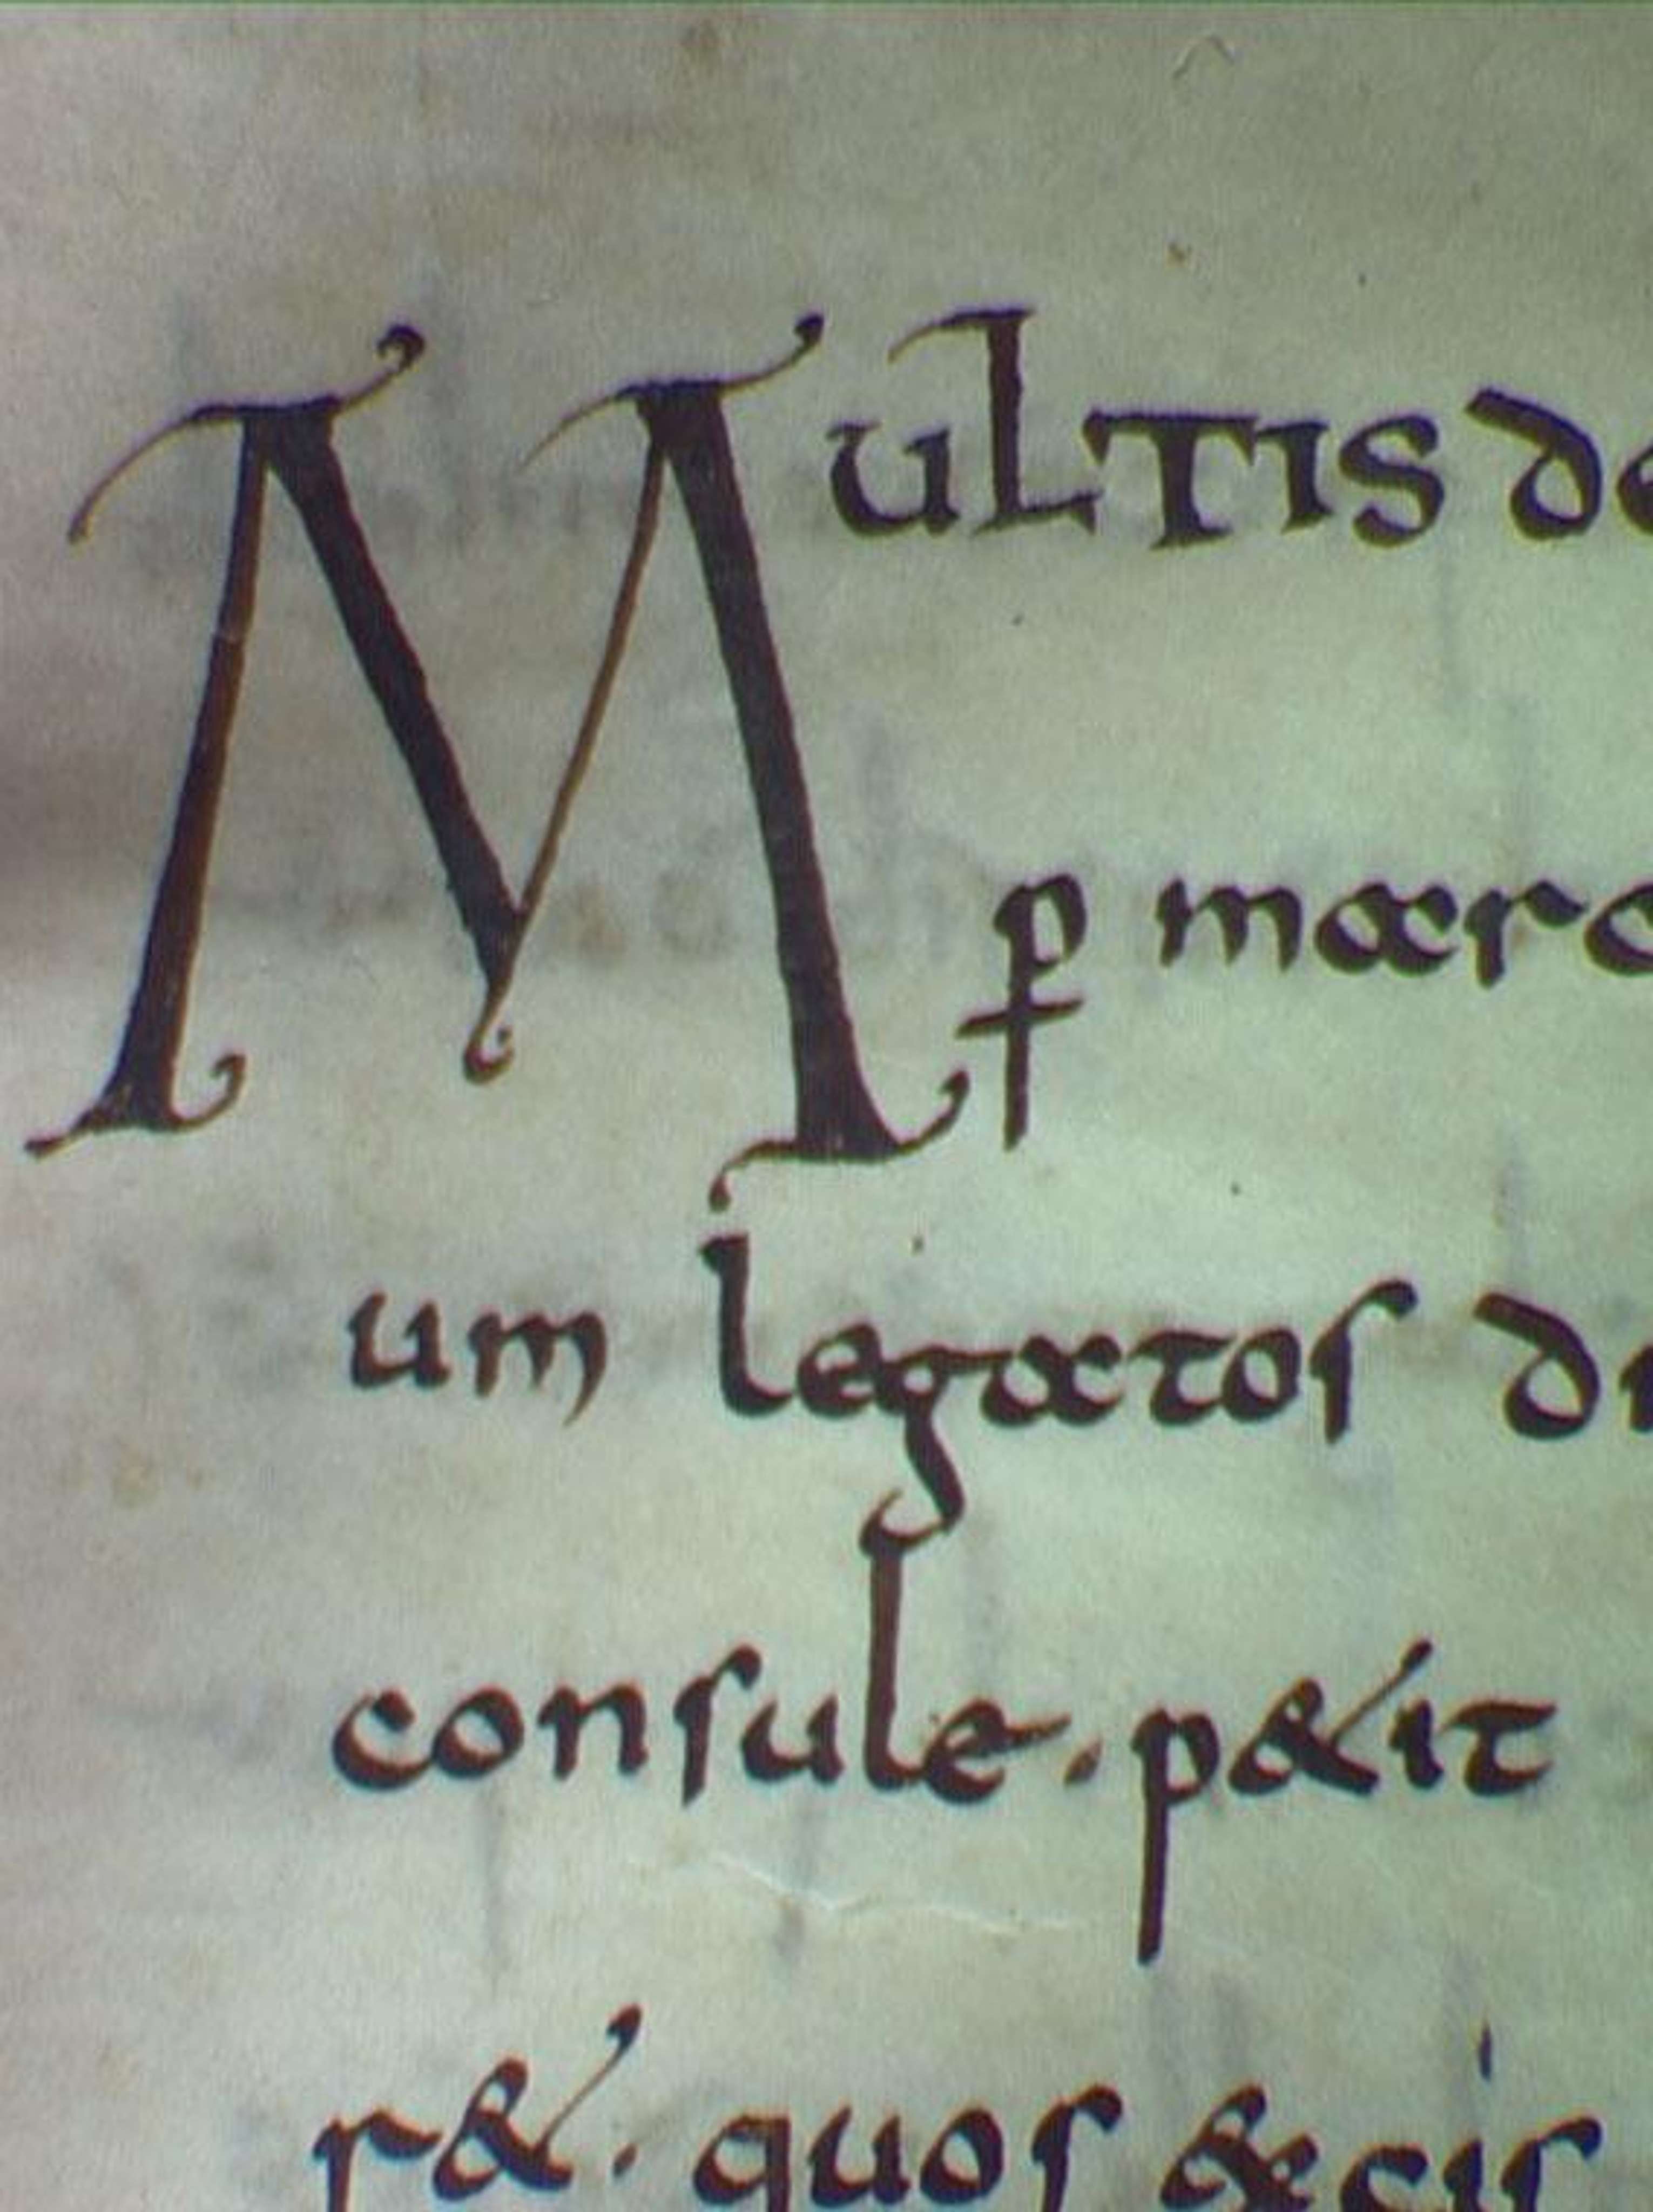 Multis de
ꝑ marc
um legatos di
consule. p&it
r&. quos &cis